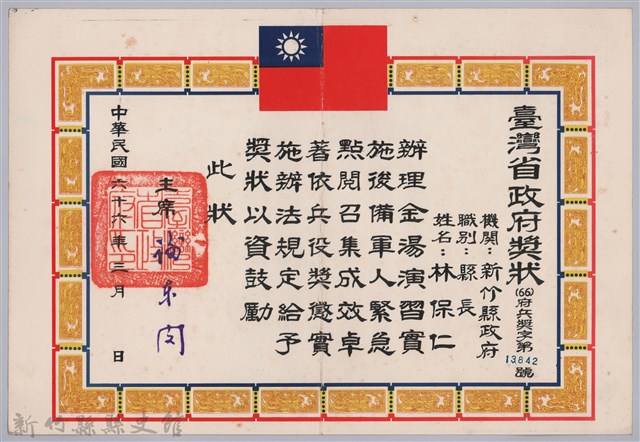 臺灣省政府獎狀
(66)府兵獎字第13842號
機關：新竹縣政府
職別：縣長
姓名：林保仁
辦理金湯演習實
施後備軍人緊急
點閱召集成效卓
著依兵役獎懲實
施辦法規定給予
獎狀以資鼓勵
此狀
主席
中華民國六十六年三月 日
新竹縣縣史館